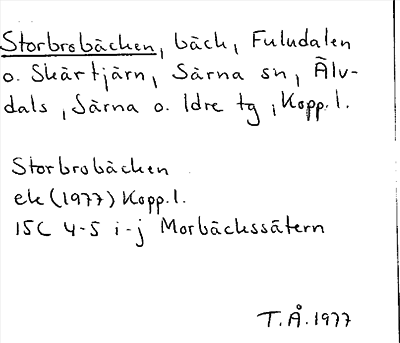 Storbrobäcken, bäck, Fuludalen
o. Skärtjärn, Särna sn, Älv-
dals, Särna o. Idre tg, Kopp.l.
Storbrobäcken
ek (1977) Kopp.l.
15C 4-5 i-j Morbäckssätern
T.Å. 1977